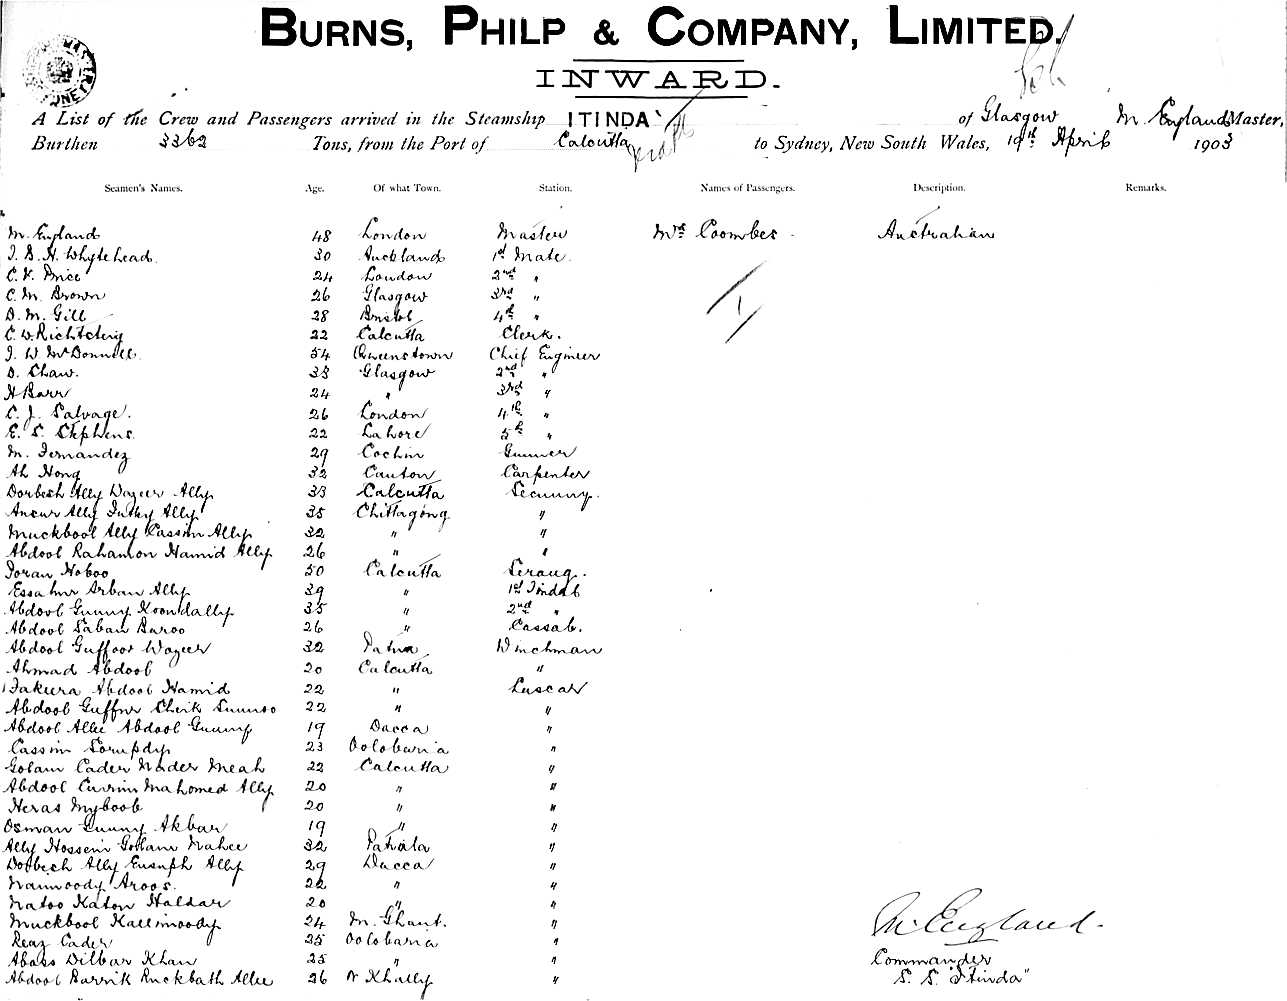 BURNS, PHILP & COMPANY, LIMITED.
INWARD.
A List of the Crew and Passengers arrived in the Steamship ITINDA of Glasgow M. England Master,
Burthen 3362 Tons, from the Port of Calcutta to Sydney, New South Wales, 19th April 1903
Seamen's Names. Age. Of what Town. Station. Names of Passengers. Description. Remarks.
M. England 48 London Master Mrs Coombes Australian
J. S. H. Whytehead 30 Auckland 1st Mate
C. V. Price 24 London 2nd "
C. M. Brown 26 Glasgow 3rd "
D. M. Gill 28 Bristol 4th "
C. W. 22 Calcutta Clerk.
J. W. McDonnell 54 Queenstown Chief Engineer
D. Shaw. 33 Glasgow 2nd "
H Barr 24 " 3rd "
C. J. Salvage. 26 London 4th "
E. S. Stephens. 22 Lahore 5th "
M. Fernandez 29 Cochin Gunner
Ah Hong 32 Canton Carpenter
Dorbesh Ally Wazeer Ally 33 Calcutta Secunny.
Ancur Ally Ally 35 Chittagong "
Muckbool Ally Cassim Ally 32 " "
Abdool Rahamon Hamid Ally 26 " "
Toran Hoboo 50 Calcutta Serang.
Essahur Arban Ally 39 " 1st Tindal
Abdool Gunny Koondally 35 " 2nd "
Abdool Saban Baroo 26 " Cassab.
Abdool Guffoor Wazeer 32 Patna Winchman
Ahmad Abdool 20 Calcutta "
Fakira Abdool Hamid 22 " Lascar
Abdool Guffur Sheik 22 " "
Abdool Allie Abdool Gunny 19 Dacca "
Cassim Sorupdy 23 Oolobaria "
Golam Cader Nader Meah 22 Calcutta "
Abdool Currim Mahomed Ally 20 " "
Heras Myboob 20 " "
Osman Gunny Akbar 19 " "
Ally Hossein Golam Nahee 32 "
Dorbesh Ally Eusuph Ally 29 Dacca "
Aroos. 22 " "
Natoo Katon Haldar 20 " "
Muckbool Kallimoody 24 M. Ghaut. "
Reaz Cader 25 Oolobaria "
Abass Dilbar Khan 25 " "
Abdool Barrik Buckbath Allie 26 N Khally "
M. England.
Commander
S. S. "Itinda"